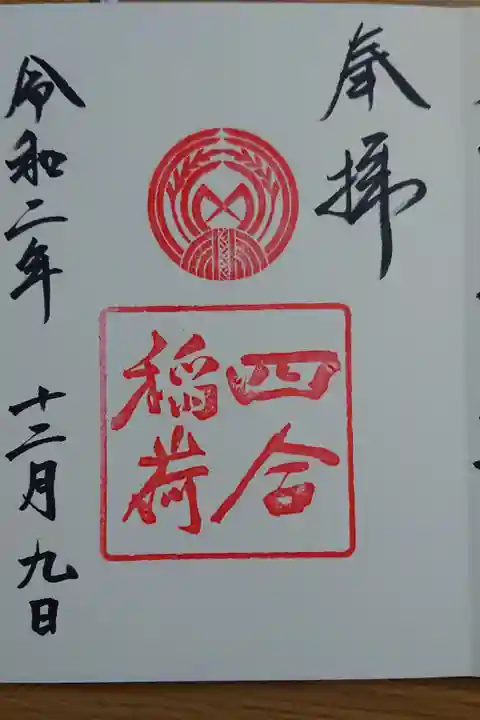 奉拝
四合
稲荷
令和二年 十二月 九日